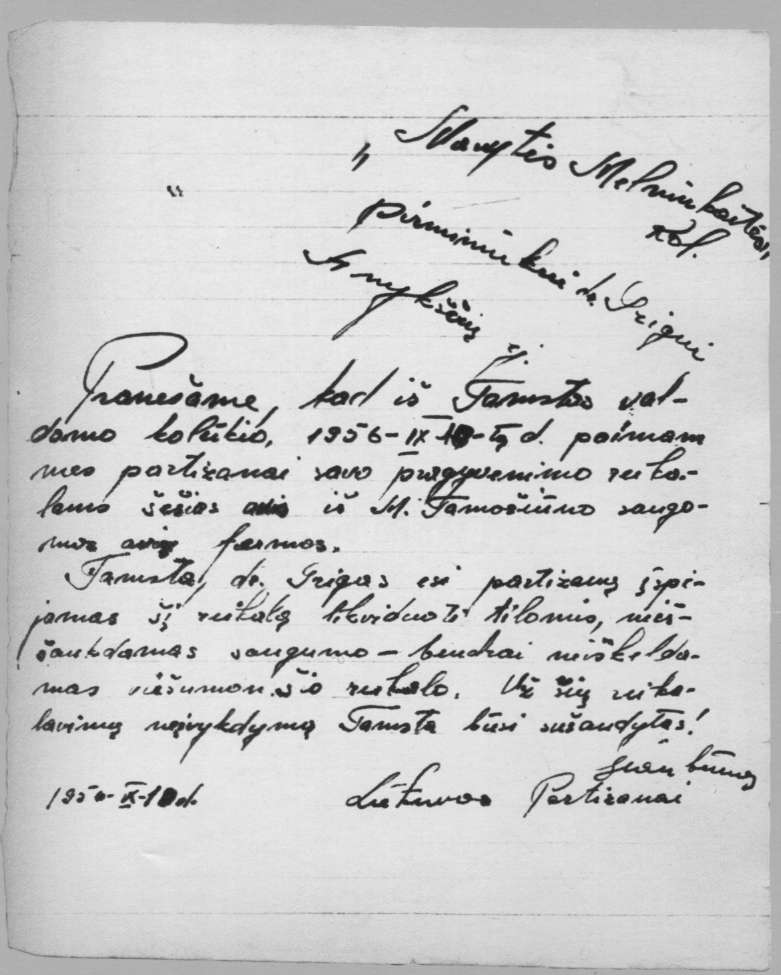 „Marytės Melninkaitės"
kol.
pirmininkui dr. Grigui
Anykščių rj.
Pranešame, kad iš Tamstos val-
domo kolūkio, 1956-IX- -tą d. paimam
mes partizanai savo pragyvenimo reika-
lams šešias avis iš M. Tamošiūno saugo-
mos avių farmos.
Tamsta, dr. Grigas esi partizanų įspė-
jamas šį reikalą likviduoti tilomis, neiš-
šaukdamas saugumo - bendrai neiškelda-
mas viešumon šio reikalo. Už šių reika-
lavimų neįvykdymą Tamsta būsi sušaudytas!
1956-IX- d. Lietuvos Partizanai